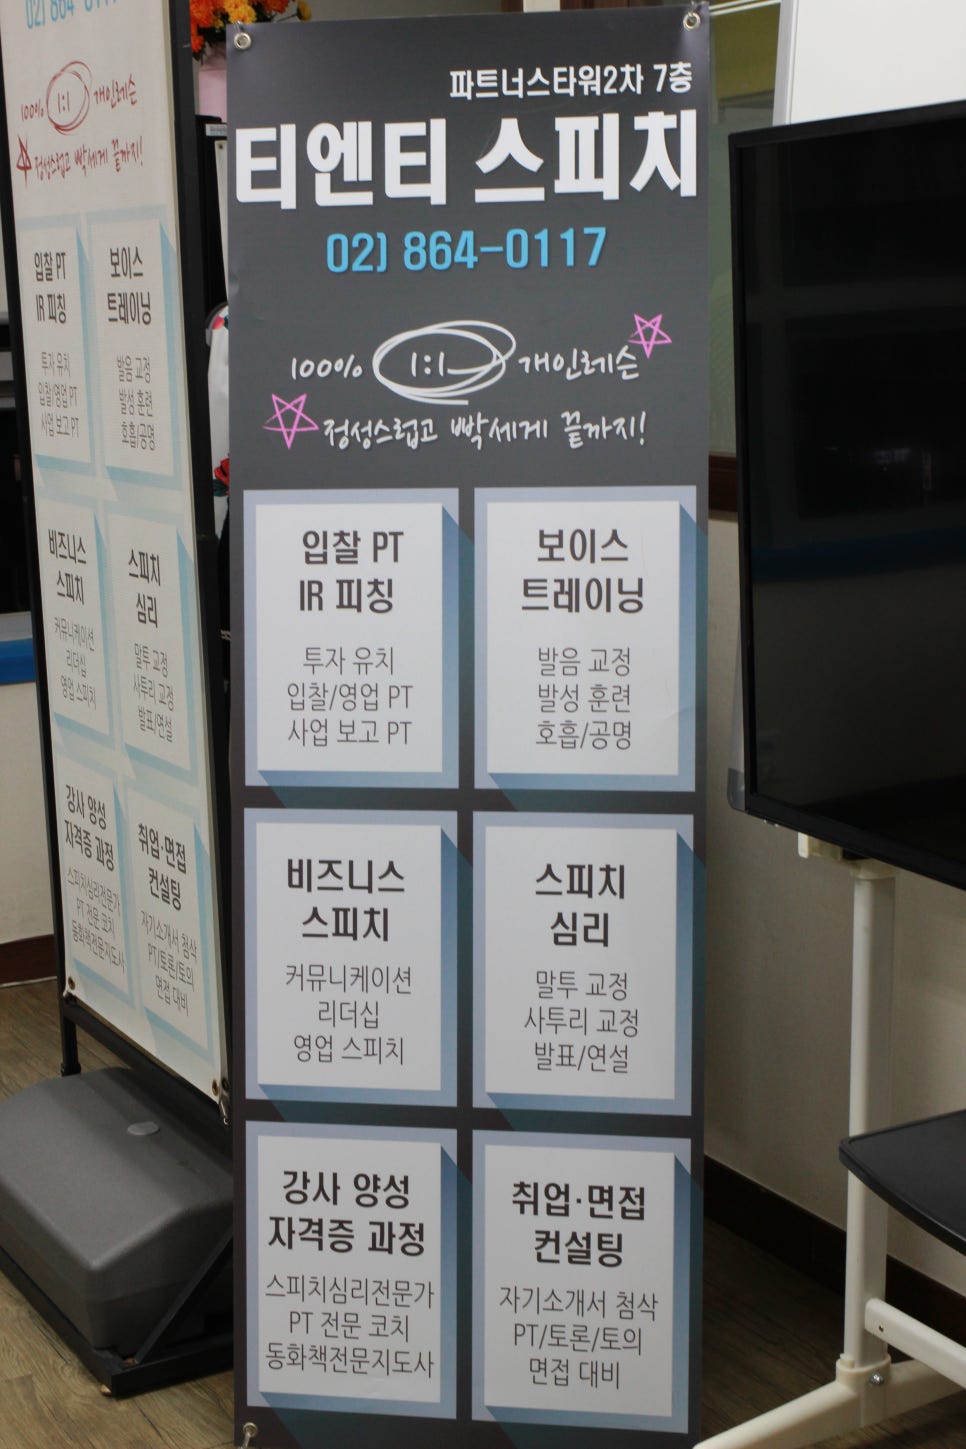 파트너스타워2차 7층
티엔티 스피치
02) 864-0117
100% 1:1 개인레슨
정성스럽고 빡세게 끝까지!
입찰 PT
IR 피칭
투자 유치
입찰/영업 PT
사업 보고 PT
보이스
트레이닝
발음 교정
발성 훈련
호흡/공명
비즈니스
스피치
커뮤니케이션
리더십
영업 스피치
스피치
심리
말투 교정
사투리 교정
발표/연설
강사 양성
자격증 과정
스피치심리전문가
PT 전문 코치
동화책전문지도사
취업·면접
컨설팅
자기소개서 첨삭
PT/토론/토의
면접 대비
02) 864-0117
100% 1:1 개인레슨
정성스럽고 빡세게 끝까지!
입찰 PT
IR 피칭
투자 유치
입찰/영업 PT
사업 보고 PT
보이스
트레이닝
발음 교정
발성 훈련
호흡/공명
비즈니스
스피치
커뮤니케이션
리더십
영업 스피치
스피치
심리
말투 교정
사투리 교정
발표/연설
강사 양성
자격증 과정
스피치심리전문가
PT 전문 코치
동화책전문지도사
취업·면접
컨설팅
자기소개서 첨삭
PT/토론/토의
면접 대비